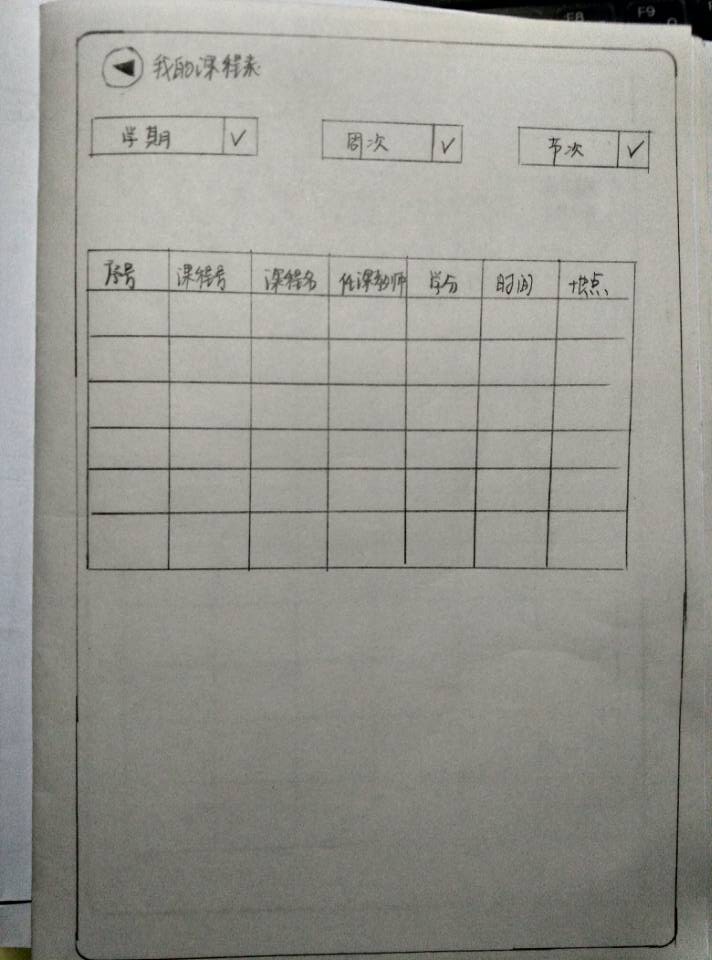 我的课程表
学期 周次 节次
序号 课程号 课程名 任课教师 学分 时间 地点
F8 F9